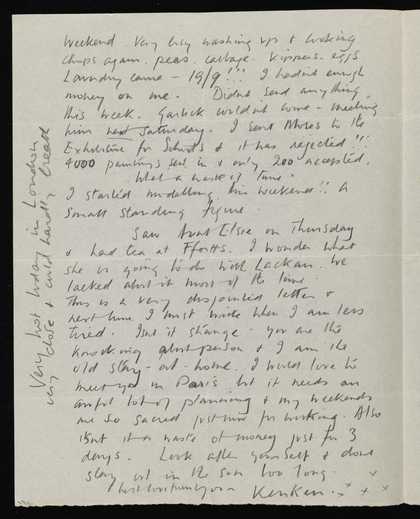 Weekend. Very busy washing up & cooking
chops again. peas. cabbage. Kippers. eggs
Laundry came – 19/9!!! I hadn't enough
money on me. Didn't send anything
this week. Garlick couldn't come – meeting
him next Saturday. I sent Moles to the
Exhibition for Schools & it was rejected!!!
4000 paintings sent in & only 200 accepted.
What a waste of time.
I started modelling this weekend!! A
small standing figure
Saw Aunt Elsie on Thursday
& had tea at Ffortts. I wonder what
she is going to do with Lackan. We
talked about it most of the time.
This is a very disjointed letter &
next time I must write when I am less
tired. Isn't it strange – you are the
knocking about person & I am the
old stay-at-home. I would love to
meet you in Paris but it needs an
awful lot of planning & my weekends
are so sacred just now for working. Also
isn't it a waste of money just for 3
days. Look after yourself & don't
stay out in the sun too long.
best love from your Kenken. x x x x
Very hot today in London
very close & could hardly breathe